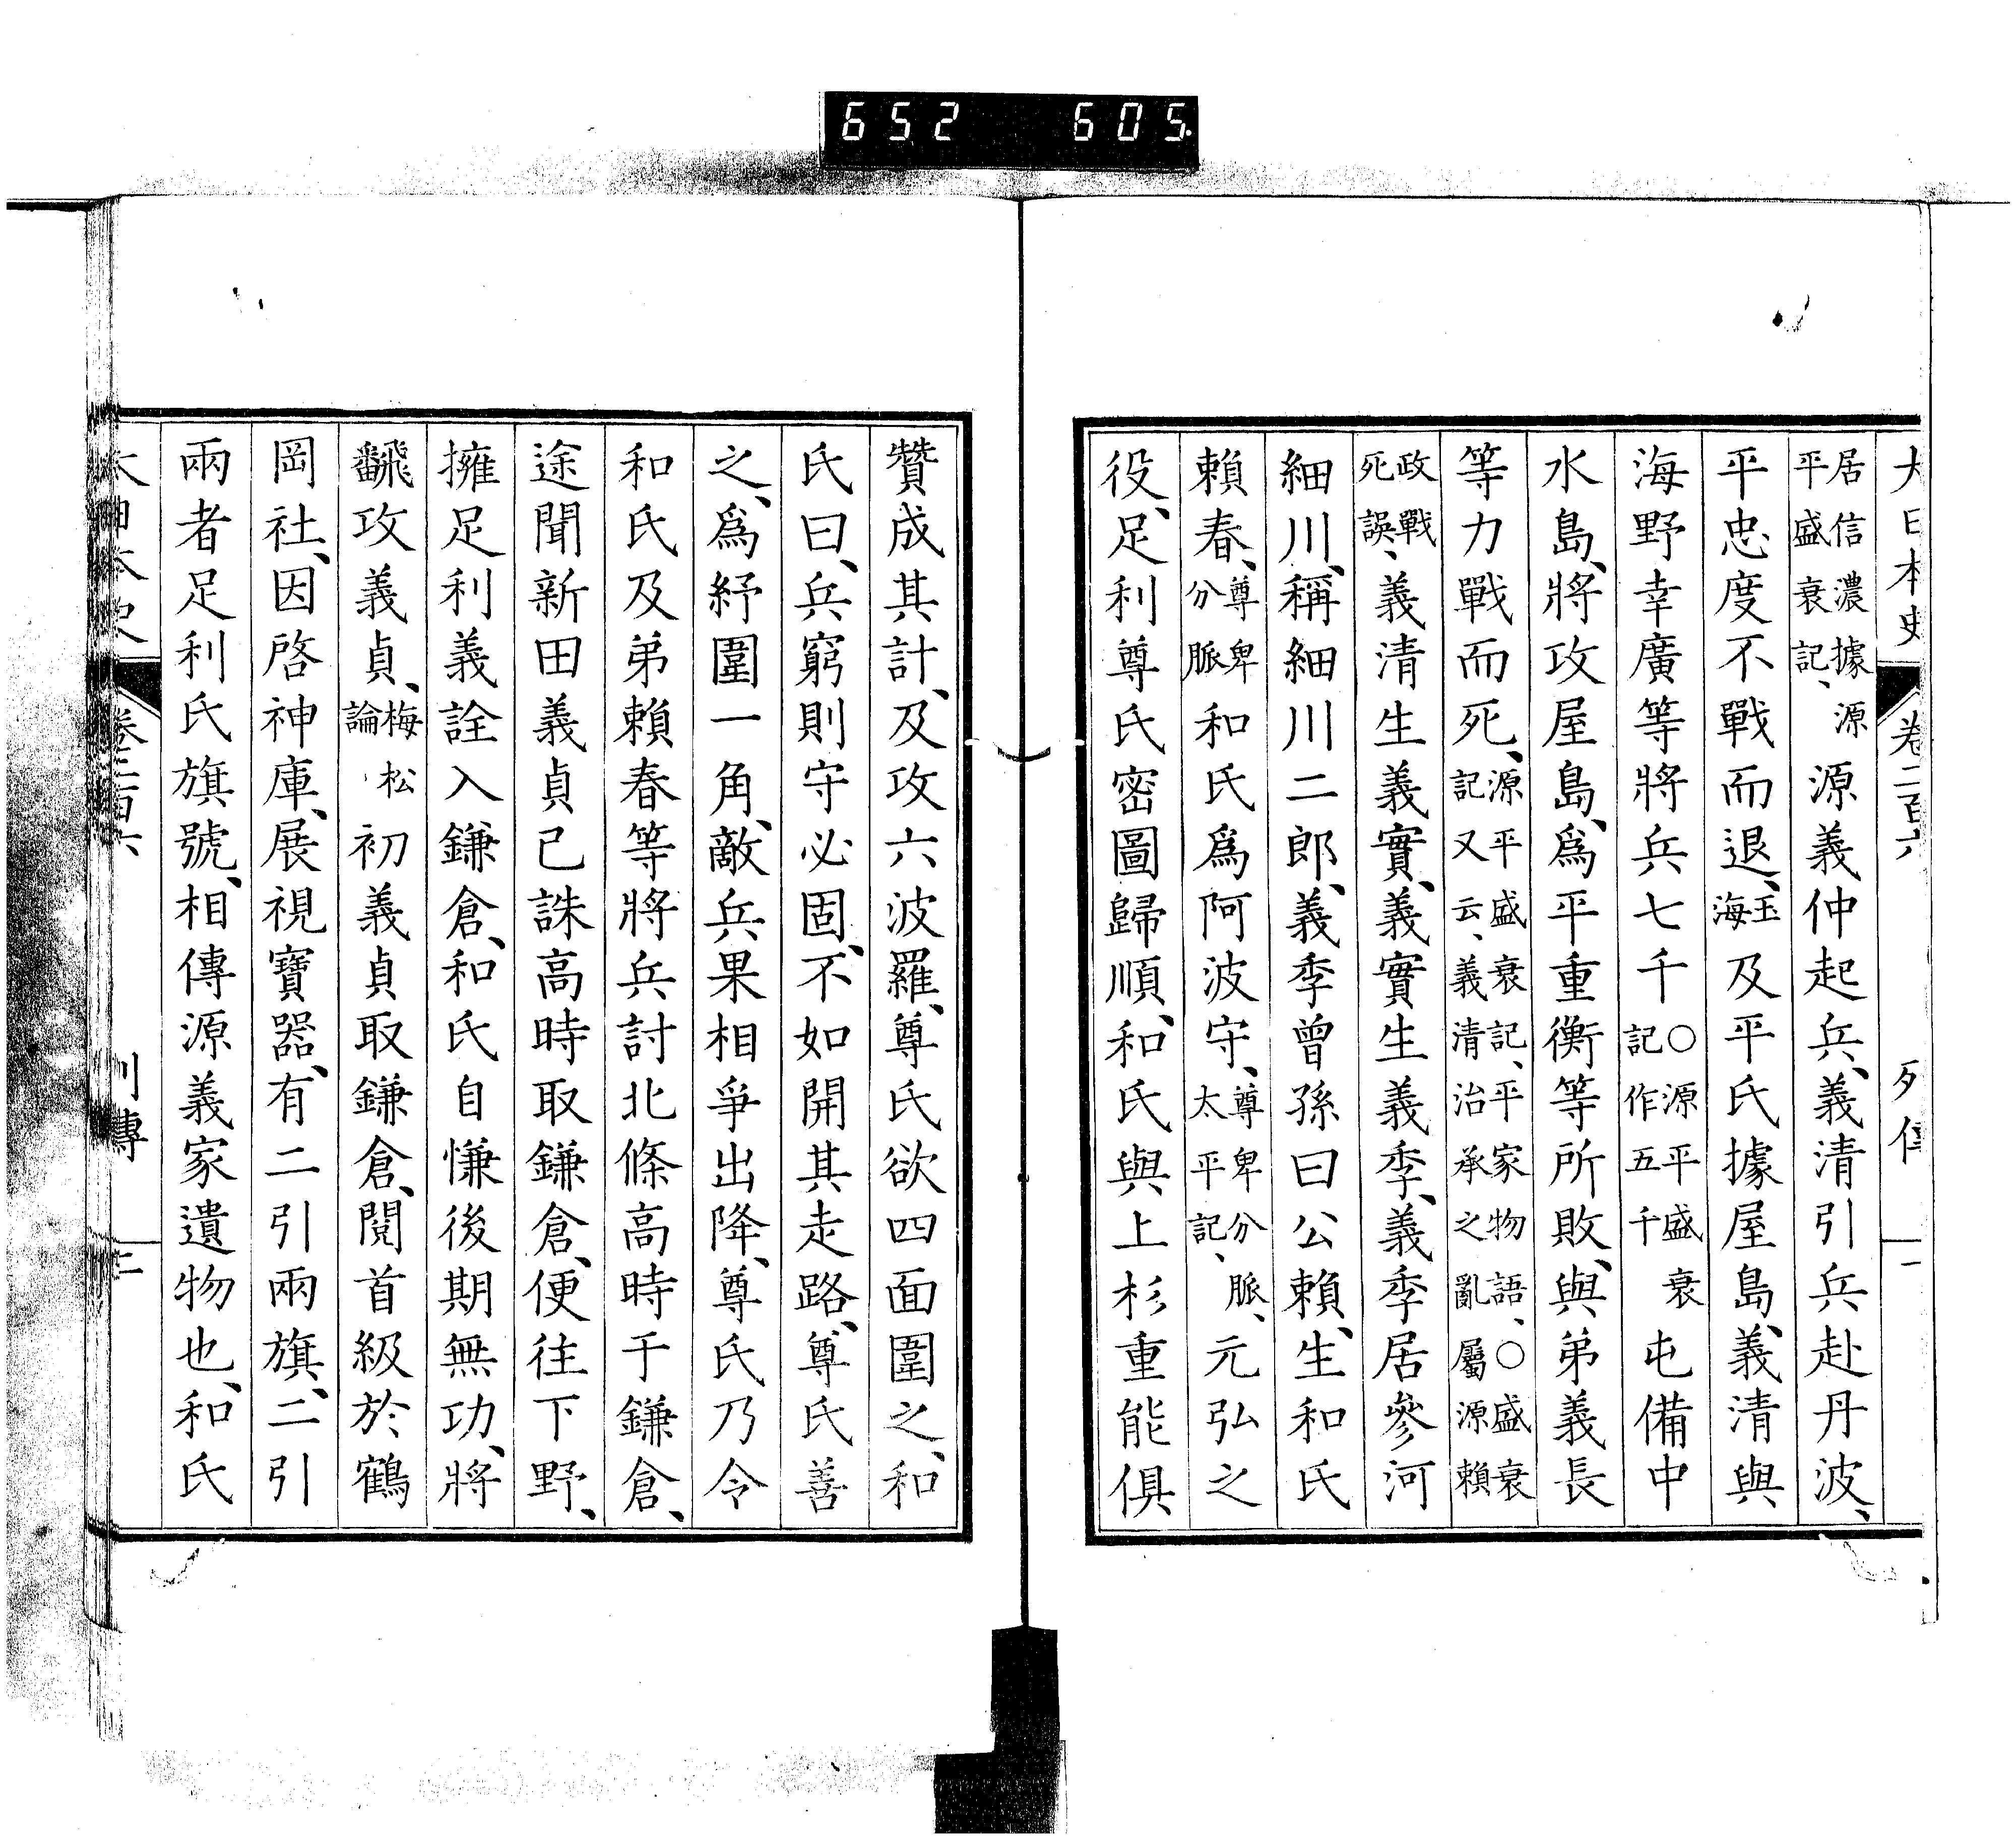 652 605.
大日本史 卷二百六 列傳 一
居信濃據源平盛衰記、源義仲起兵、義淸引兵赴丹波、
平忠度不戰而退、玉海及平氏據屋島、義清與
海野幸廣等將兵七千○源平盛衰記作五千屯備中
水島、將攻屋島、爲平重衡等所敗、與弟義長
等力戰而死、源平盛衰記、平家物語、○盛衰記又云、義清治承之亂、屬源賴
政戰死誤、義清生義實、義實生義季、義季居參河
細川、稱細川二郎、義季曾孫曰公賴、生和氏
賴春、尊卑分脈和氏爲阿波守、尊卑分脈、太平記、元弘之
役、足利尊氏密圖歸順、和氏與上杉重能俱
贊成其計、及攻六波羅、尊氏欲四面圍之、和
氏曰、兵窮則守必固、不如開其走路、尊氏善
之、爲紓圍一角、敵兵果相爭出降、尊氏乃令
和氏及弟賴春等將兵討北條高時于鎌倉、
途聞新田義貞已誅高時取鎌倉、便往下野、
擁足利義詮入鎌倉、和氏自慊後期無功、將
飜攻義貞、梅松論初義貞取鎌倉、閱首級於鶴
岡社、因啓神庫、展視寶器、有二引兩旗、二引
兩者足利氏旗號、相傳源義家遺物也、和氏
大日本史 卷二百六 列傳 二